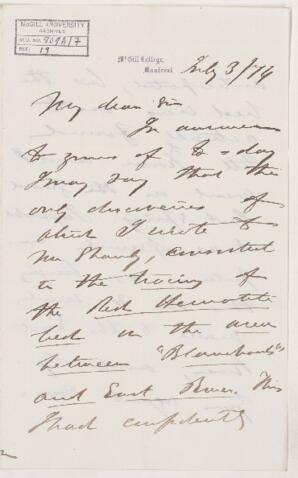 McGILL UNIVERSITY
ARCHIVES
ACC. NO. 909A/7
REF. 19
McGill College,
Montreal
July 3/74
My dear Sir
In answer
to yours of to-day
I may say that the
only discoveries of
which I wrote to
Mr Shanly, consisted
in the tracing of
the Red Hematite
bed in the area
between "Blanchards"
and East River. This
I had confidently